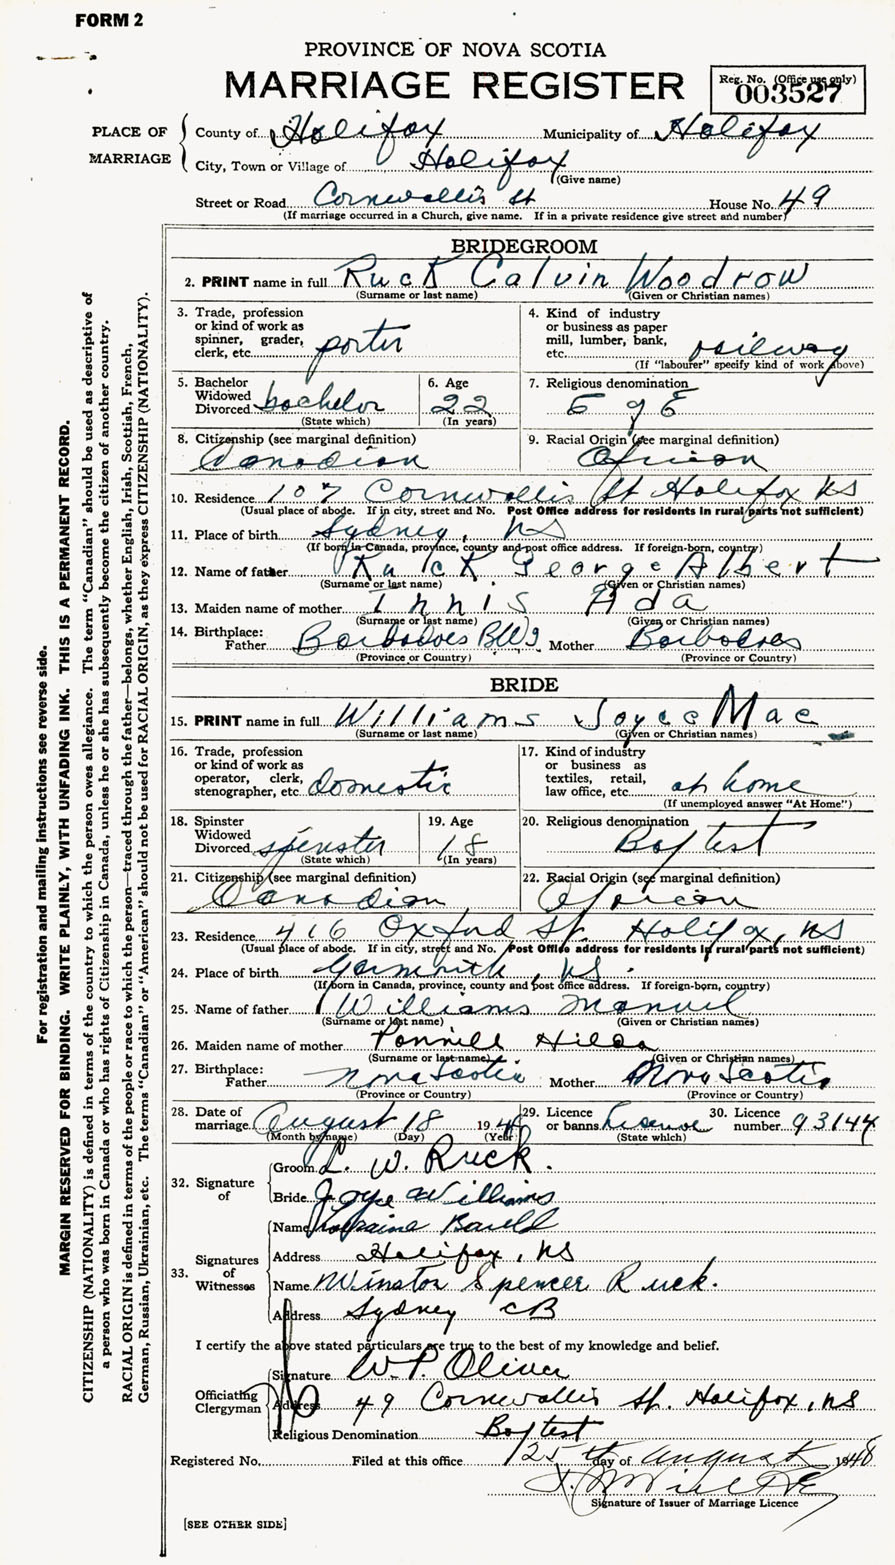 FORM 2
PROVINCE OF NOVA SCOTIA
MARRIAGE REGISTER
Reg. No. (Office use only)
003527
PLACE OF MARRIAGE
County of Halifax Municipality of Halifax
City, Town or Village of Halifax
(Give name)
Street or Road Cornwallis St House No. 49
(If marriage occurred in a Church, give name. If in a private residence give street and number)
BRIDEGROOM
2. PRINT name in full Ruck Calvin Woodrow
(Surname or last name) (Given or Christian names)
3. Trade, profession or kind of work as spinner, grader, clerk, etc. porter
4. Kind of industry or business as paper mill, lumber, bank, etc. railway
(If "labourer" specify kind of work above)
5. Bachelor Widowed Divorced bachelor
(State which)
6. Age 22
(In years)
7. Religious denomination
8. Citizenship (see marginal definition)
Canadian
9. Racial Origin (see marginal definition)
African
10. Residence 107 Cornwallis St Halifax NS
(Usual place of abode. If in city, street and No. Post Office address for residents in rural parts not sufficient)
11. Place of birth Sydney, NS
(If born in Canada, province, county and post office address. If foreign-born, country)
12. Name of father Ruck George Albert
(Surname or last name) (Given or Christian names)
13. Maiden name of mother Innis Ada
(Surname or last name) (Given or Christian names)
14. Birthplace: Father Barbadoes BWI Mother Barbadoes
(Province or Country) (Province or Country)
BRIDE
15. PRINT name in full Williams Joyce Mae
(Surname or last name) (Given or Christian names)
16. Trade, profession or kind of work as operator, clerk, stenographer, etc. domestic
17. Kind of industry or business as textiles, retail, law office, etc. at home
(If unemployed answer "At Home")
18. Spinster Widowed Divorced spinster
(State which)
19. Age 18
(In years)
20. Religious denomination
Baptist
21. Citizenship (see marginal definition)
Canadian
22. Racial Origin (see marginal definition)
African
23. Residence 416 Oxford St. Halifax, NS
(Usual place of abode. If in city, street and No. Post Office address for residents in rural parts not sufficient)
24. Place of birth Yarmouth, NS.
(If born in Canada, province, county and post office address. If foreign-born, country)
25. Name of father Williams Manuel
(Surname or last name) (Given or Christian names)
26. Maiden name of mother Hilda
(Surname or last name) (Given or Christian names)
27. Birthplace: Father Nova Scotia Mother Nova Scotia
(Province or Country) (Province or Country)
28. Date of marriage August 18 1948
(Month by name) (Day) (Year)
29. Licence or banns licence
(State which)
30. Licence number 93144
32. Signature of
Groom C. W. Ruck.
Bride Joyce Williams
33. Signatures of Witnesses
Name Lorraine
Address Halifax, NS
Name Winston Spencer Ruck.
Address Sydney CB
I certify the above stated particulars are true to the best of my knowledge and belief.
Officiating Clergyman
Signature W. P. Oliver
Address 49 Cornwallis St. Halifax, NS
Religious Denomination Baptist
Registered No. Filed at this office 25th day of August 1948
Signature of Issuer of Marriage Licence
[SEE OTHER SIDE]
For registration and mailing instructions see reverse side.
MARGIN RESERVED FOR BINDING. WRITE PLAINLY, WITH UNFADING INK. THIS IS A PERMANENT RECORD.
CITIZENSHIP (NATIONALITY) is defined in terms of the country to which the person owes allegiance. The term "Canadian" should be used as descriptive of
a person who was born in Canada or who has rights of Citizenship in Canada, unless he or she has subsequently become the citizen of another country.
RACIAL ORIGIN is defined in terms of the people or race to which the person—traced through the father—belongs, whether English, Irish, Scottish, French,
German, Russian, Ukrainian, etc. The terms "Canadian" or "American" should not be used for RACIAL ORIGIN, as they express CITIZENSHIP (NATIONALITY).